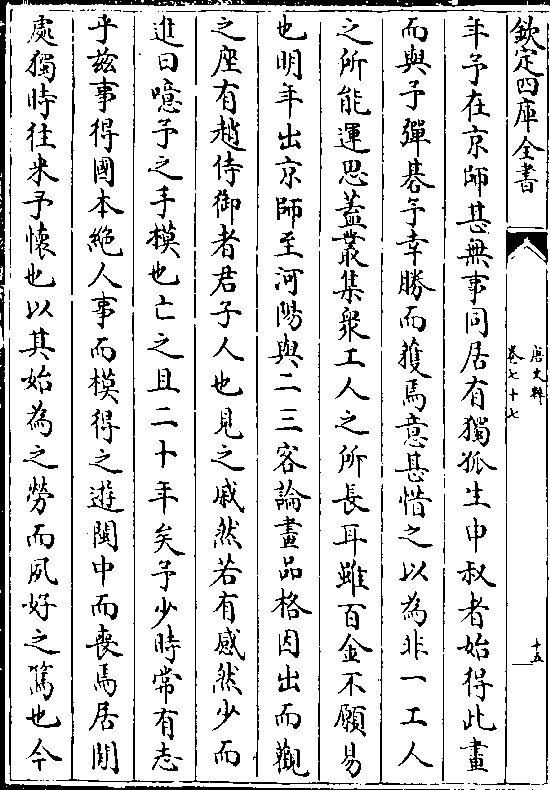 欽定四庫全書
唐文粹
卷七十七
十五
年予在京師甚無事同居有獨孤生申叔者始得此畫
而與予彈棊予幸勝而獲焉意甚惜之以為非一工人
之所能運思蓋叢集衆工人之所長耳雖百金不願易
也明年出京師至河陽與二三客論畫品格因出而觀
之座有趙侍御者君子人也見之戚然若有感然少而
進曰噫予之手模也亡之且二十年矣予少時常有志
乎兹事得國本絶人事而模得之遊閩中而喪焉居閒
處獨時往来予懐也以其始為之勞而夙好之篤也今